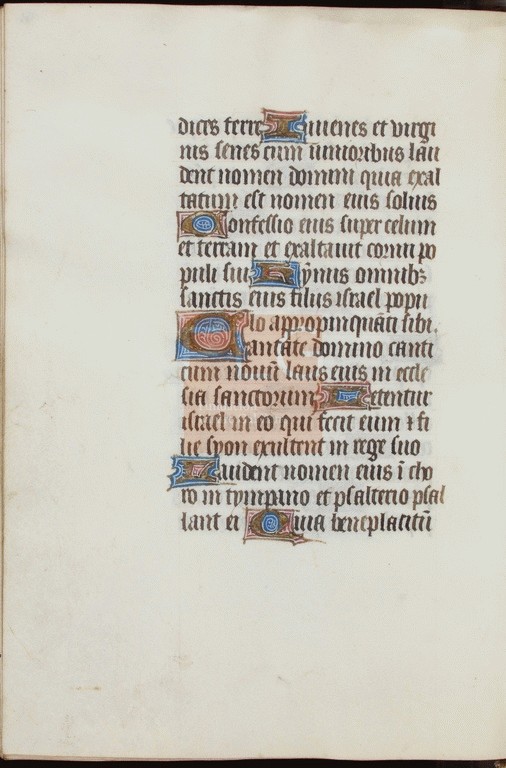 dices terre Iuuenes et virgi
nis senes cum iunioribus lau
dent nomen domini quia exal
tatum est nomen eius solius
Confessio eius super celum
et terram et exaltauit cornu po
puli sui Hymnus omnibꝫ
sanctis eius filijs israel popu
lo appropinquāti sibi.
Cantate domino canti
cum nouū laus eius in eccle
sia sanctorum Letentur
israel in eo qui fecit eum ⁊ fi
lie syon exultent in rege suo
Laudent nomen eius ī cho
ro in tympano et psalterio psal
lant ei Quia beneplacitū